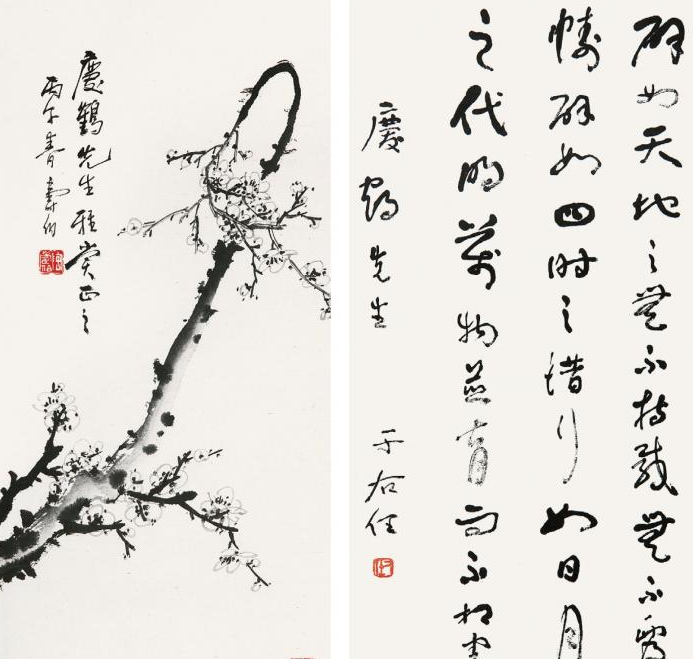 辟如天地之無不持載無不覆
幬辟如四時之錯行如日月
之代明萬物並育而不相害
慶鶴先生
于右任
慶鶴先生雅賞正之
丙午春壽伯